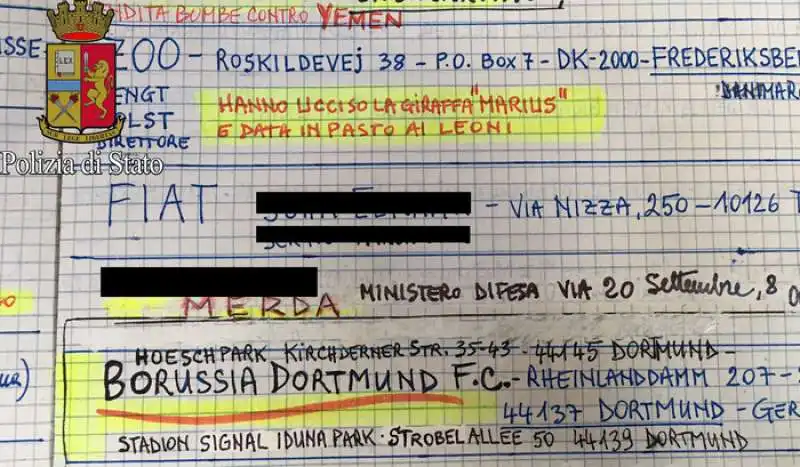 VENDITA BOMBE CONTRO YEMEN
ZOO - ROSKILDEVEJ 38 - P.O. BOX 7 - DK-2000 - FREDERIKSBE
DANIMAR
HANNO UCCISO LA GIRAFFA "MARIUS"
E DATA IN PASTO AI LEONI
DIRETTORE
Polizia di Stato
FIAT
- VIA NIZZA, 250 - 10126 T
MERDA MINISTERO DIFESA VIA 20 Settembre, 8
HOESCHPARK KIRCHDERNER STR. 35-43 - 44145 DORTMUND -
BORUSSIA DORTMUND F.C. - RHEINLANDDAMM 207-
44137 DORTMUND - GER
STADION SIGNAL IDUNA PARK - STROBELALLEE 50 44139 DORTMUND